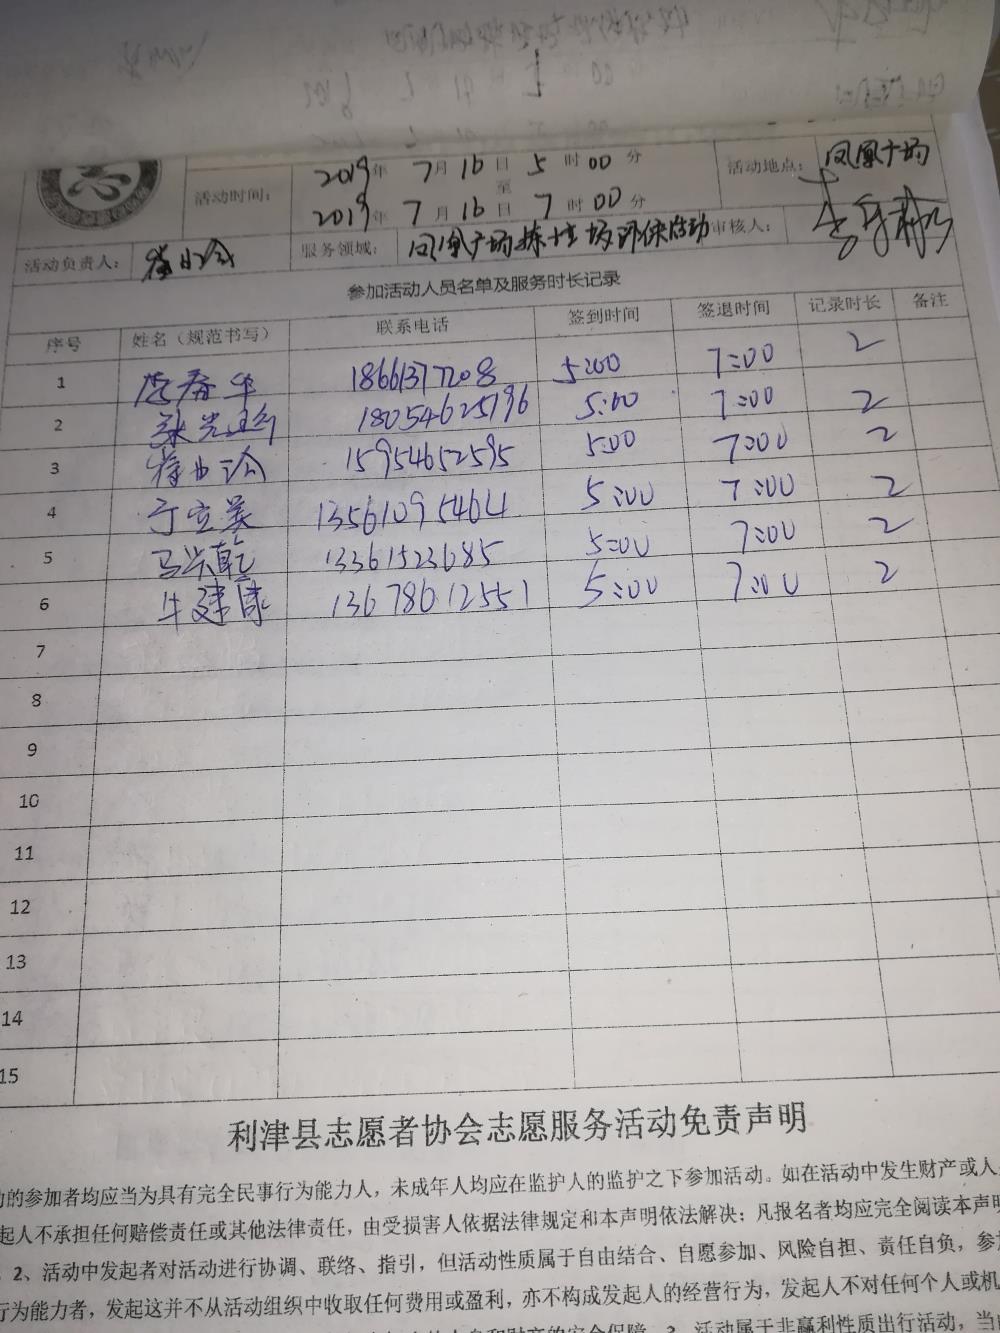 活动时间： 2019年 7月 16日 5时 00分
至
2019年 7月 16日 7时 00分
活动地点： 凤凰广场
活动负责人：
服务领域： 凤凰广场 环保活动
审核人：
参加活动人员名单及服务时长记录
序号 姓名（规范书写） 联系电话 签到时间 签退时间 记录时长 备注
1 春华 18661377208 5:00 7:00 2
2 18054625196 5:00 7:00 2
3 15954652595 5:00 7:00 2
4 于立英 13561095464 5:00 7:00 2
5 马兴乾 13361523685 5:00 7:00 2
6 牛建康 13678612551 5:00 7:00 2
7
8
9
10
11
12
13
14
15
利津县志愿者协会志愿服务活动免责声明
动的参加者均应当为具有完全民事行为能力人，未成年人均应在监护人的监护之下参加活动。如在活动中发生财产或人
起人不承担任何赔偿责任或其他法律责任，由受损害人依据法律规定和本声明依法解决；凡报名者均应完全阅读本声明
2、活动中发起者对活动进行协调、联络、指引，但活动性质属于自由结合、自愿参加、风险自担、责任自负，参
行为能力者，发起这并不从活动组织中收取任何费用或盈利，亦不构成发起人的经营行为，发起人不对任何个人或机
和财产的安全保障 3、活动属于非赢利性质出行活动，当